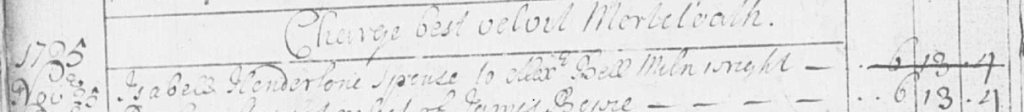 Charge best velvit Mortcloath.
1735
Isabell Hendersone spouse to Allexr Bell Miln wright — .. 6 13 .4
of James — — — — .. 6 13 .4